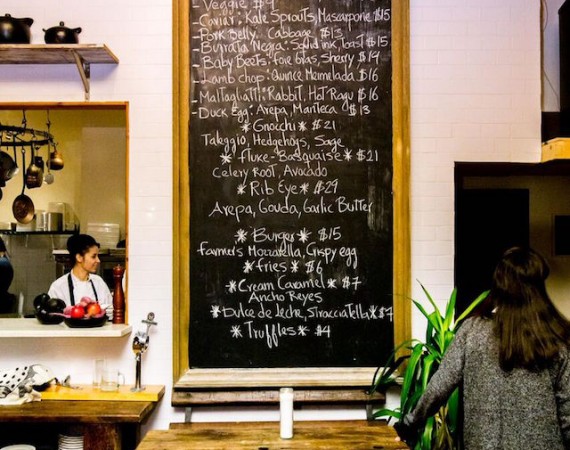 - Veggie $9
- Caviar: Kale Sprouts, Mascarpone $15
- Pork Belly, Cabbage $13
- Burrata Negra: Squid ink, Toast $15
- Baby Beets: Foie Gras, Sherry $14
- Lamb chop: Quince Mermelada $16
- Maltagliatti: Rabbit, Hot Ragu $16
- Duck Egg: Arepa, Manteca $13
* Gnocchi * $21
Taleggio, Hedgehogs, Sage
* Fluke - Basquaise * $21
Celery Root, Avocado
* Rib Eye * $29
Arepa, Gouda, Garlic Butter
* Burger * $15
Farmer's Mozzarella, Crispy egg
* fries * $6
* Cream Caramel * $7
Ancho Reyes
* Dulce de Leche, Stracciatella * $7
* Truffles * $4